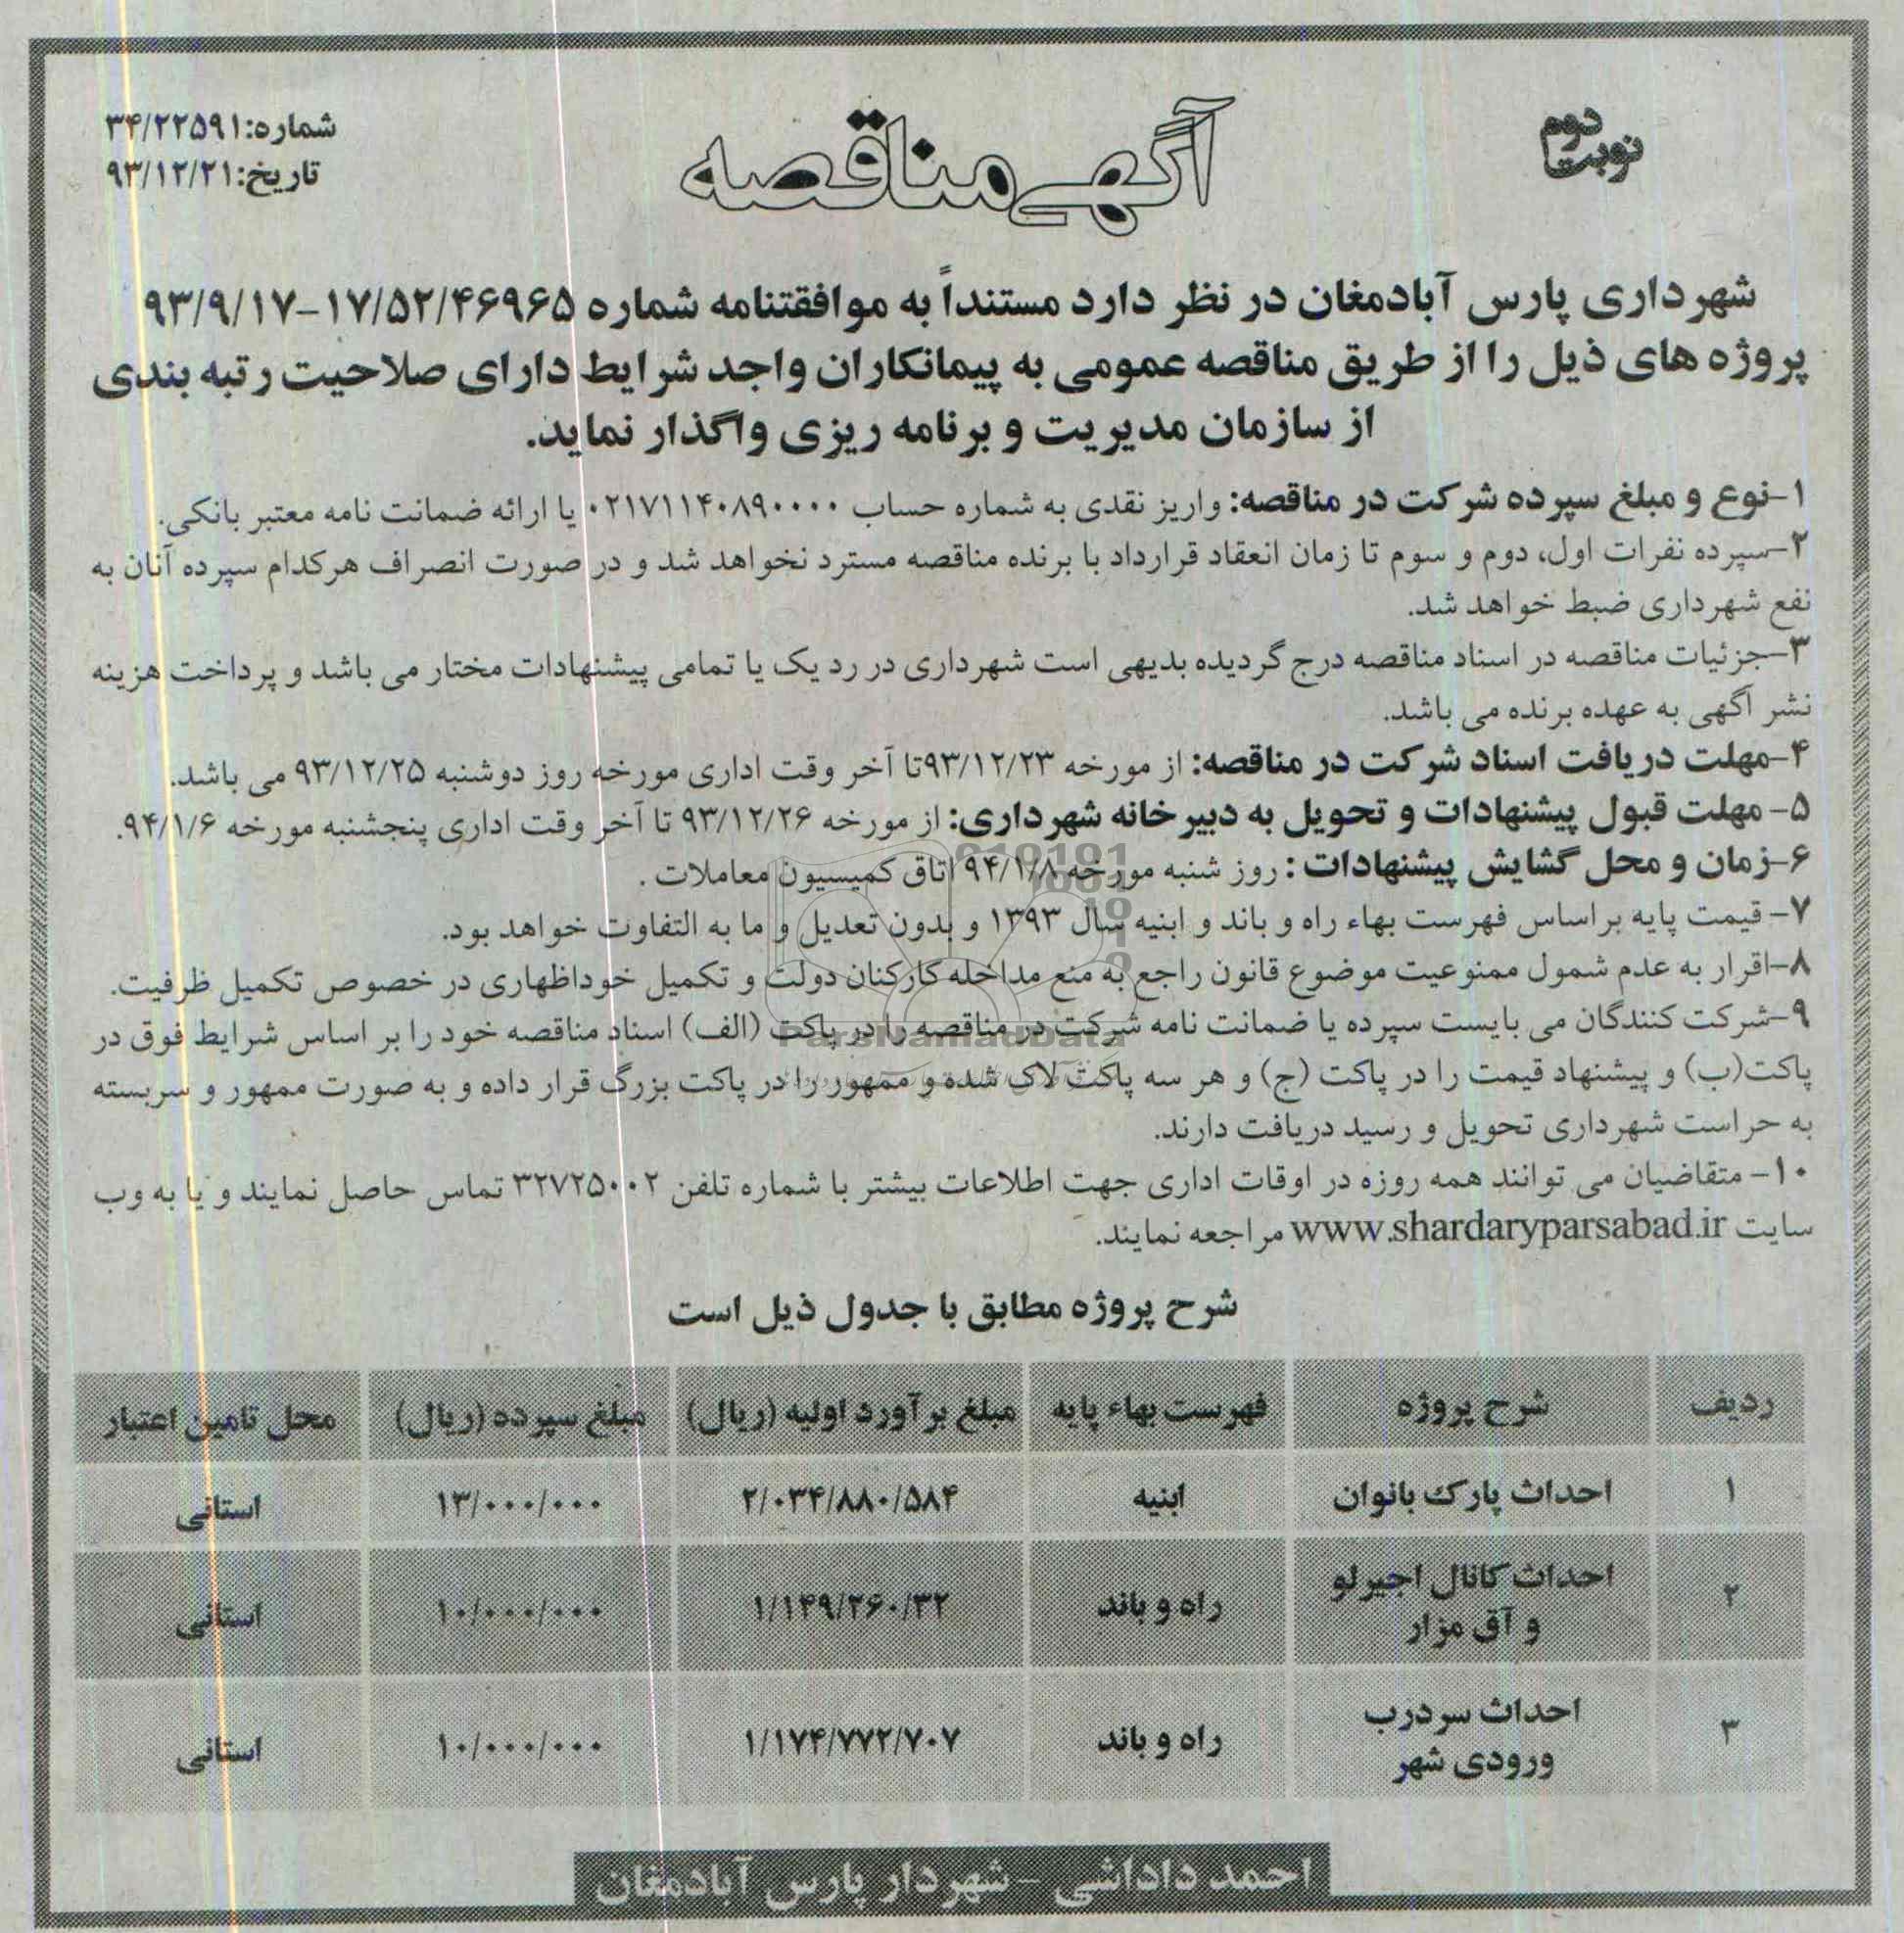 نوبت دوم
آگهی مناقصه
شماره:۳۴/۲۲۵۹۱
تاریخ:۹۳/۱۲/۲۱
شهرداری پارس آبادمغان در نظر دارد مستنداً به موافقتنامه شماره ۱۷/۵۲/۴۶۹۶۵-۹۳/۹/۱۷
پروژه های ذیل را از طریق مناقصه عمومی به پیمانکاران واجد شرایط دارای صلاحیت رتبه بندی
از سازمان مدیریت و برنامه ریزی واگذار نماید.
۱-نوع و مبلغ سپرده شرکت در مناقصه: واریز نقدی به شماره حساب ۰۲۱۷۱۱۴۰۸۹۰۰۰۰ یا ارائه ضمانت نامه معتبر بانکی.
۲-سپرده نفرات اول، دوم و سوم تا زمان انعقاد قرارداد با برنده مناقصه مسترد نخواهد شد و در صورت انصراف هرکدام سپرده آنان به
نفع شهرداری ضبط خواهد شد.
۳-جزئیات مناقصه در اسناد مناقصه درج گردیده بدیهی است شهرداری در رد یک یا تمامی پیشنهادات مختار می باشد و پرداخت هزینه
نشر آگهی به عهده برنده می باشد.
۴-مهلت دریافت اسناد شرکت در مناقصه: از مورخه ۹۳/۱۲/۲۳تا آخر وقت اداری مورخه روز دوشنبه ۹۳/۱۲/۲۵ می باشد.
۵- مهلت قبول پیشنهادات و تحویل به دبیرخانه شهرداری: از مورخه ۹۳/۱۲/۲۶ تا آخر وقت اداری پنجشنبه مورخه ۹۴/۱/۶.
۶-زمان و محل گشایش پیشنهادات : روز شنبه مورخه ۹۴/۱/۸ اتاق کمیسیون معاملات .
۷- قیمت پایه براساس فهرست بهاء راه و باند و ابنیه سال ۱۳۹۳ و بدون تعدیل و ما به التفاوت خواهد بود.
۸-اقرار به عدم شمول ممنوعیت موضوع قانون راجع به منع مداخله کارکنان دولت و تکمیل خوداظهاری در خصوص تکمیل ظرفیت.
۹-شرکت کنندگان می بایست سپرده یا ضمانت نامه شرکت در مناقصه را در پاکت (الف) اسناد مناقصه خود را بر اساس شرایط فوق در
پاکت(ب) و پیشنهاد قیمت را در پاکت (ج) و هر سه پاکت لاک شده و ممهور را در پاکت بزرگ قرار داده و به صورت ممهور و سربسته
به حراست شهرداری تحویل و رسید دریافت دارند.
۱۰- متقاضیان می توانند همه روزه در اوقات اداری جهت اطلاعات بیشتر با شماره تلفن ۳۲۷۲۵۰۰۲ تماس حاصل نمایند و یا به وب
سایت www.shardaryparsabad.ir مراجعه نمایند.
شرح پروژه مطابق با جدول ذیل است
ردیف شرح پروژه فهرست بهاء پایه مبلغ برآورد اولیه (ریال) مبلغ سپرده (ریال) محل تامین اعتبار
۱ احداث پارک بانوان ابنیه ۲/۰۳۴/۸۸۰/۵۸۴ ۱۳/۰۰۰/۰۰۰ استانی
۲ احداث کانال اجیرلو و آق مزار راه و باند ۱/۱۴۹/۲۶۰/۳۲ ۱۰/۰۰۰/۰۰۰ استانی
۳ احداث سردرب ورودی شهر راه و باند ۱/۱۷۴/۷۷۲/۷۰۷ ۱۰/۰۰۰/۰۰۰ استانی
احمد داداشی - شهردار پارس آبادمغان
ParsNamadData